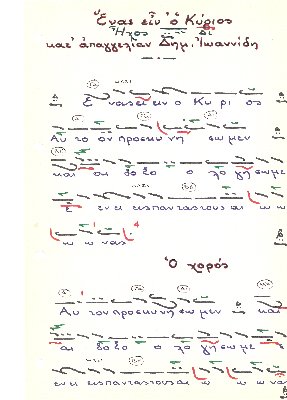 Ἕνας εἶν' ὁ Κύριος
Ἦχος Δι
κατ' ἀπαγγελίαν Δημ. Ἰωαννίδη
Ε νας ει ειν ο Κυ ρι ος
Αυ το ον προσκυ νη σω μεν
και αι δο ξο ο λο γη σωμε
ε νεκ εις παντας τους αι ω ω
ω ω νας
Ὁ χορός
Αυ τον προσκυ νη σω μεν και
αι δο ξο ο λο γη σωμε ε
ε νεκ εις παντας τους αι ω ω ω νας